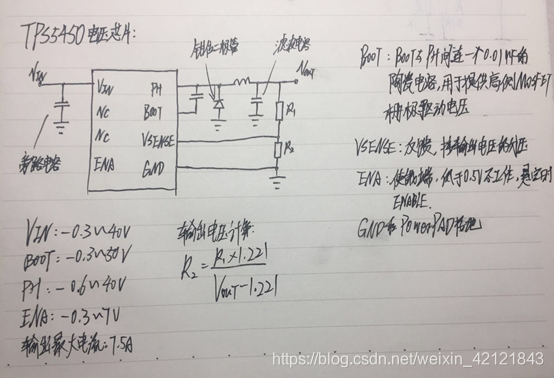 TPS5450电压芯片:
VIN
VIN
NC
NC
ENA
PH
BOOT
VSENSE
GND
旁路电容
钳位二极管
滤波电容
Vout
R1
R2
BOOT: BOOT与PH间连一个0.01MF的
陶瓷电容,用于提供高侧MOSFET
栅极驱动电压
VSENSE:反馈,接输出电压的分压
ENA:使能端,低于0.5V不工作,悬空时
ENABLE.
GND和PowerPAD接地
VIN:-0.3~40V
BOOT:-0.3~50V
PH:-0.6~40V
ENA:-0.3~7V
输出最大电流:7.5A
输出电压计算:
R2=R1×1.221/VOUT-1.221
https://blog.csdn.net/weixin_42121843